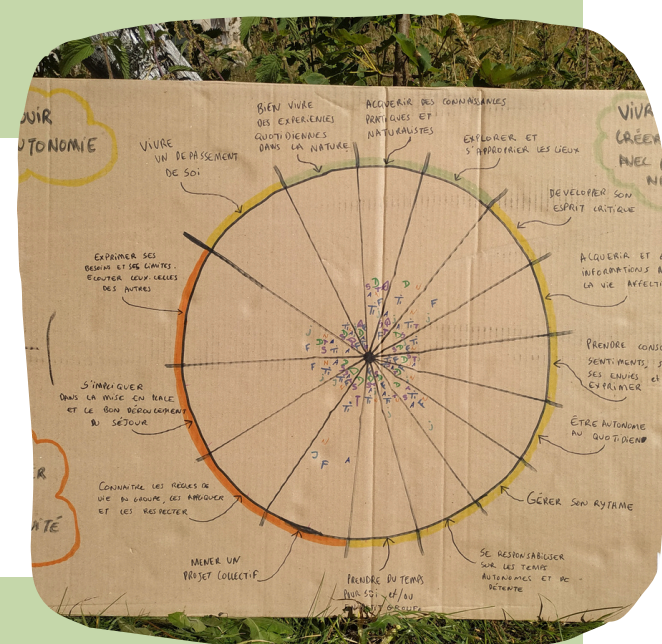 UTONOMIE
VIVRE
UN DEPASSEMENT
DE SOI
BIEN VIVRE
DES EXPERIENCES
QUOTIDIENNES
DANS LA NATURE
ACQUERIR DES CONNAISSANCES
PRATIQUES ET
NATURALISTES
EXPLORER ET
S'APPROPRIER LES LIEUX
DEVELOPPER SON
ESPRIT CRITIQUE
ACQUERIR ET
INFORMATIONS
LA VIE AFFECTI
PRENDRE CONSC
SENTIMENTS, S
SES ENVIES, et
EXPRIMER
ÊTRE AUTONOME
AU QUOTIDIEN
GÉRER SON RYTHME
SE RESPONSABILISER
SUR LES TEMPS
AUTONOMES ET DE
DÉTENTE
PRENDRE DU TEMPS
POUR SOI et/ou
GROUPE
MENER UN
PROJET COLLECTIF
CONNAITRE LES RÈGLES DE
VIE DU GROUPE, LES APPLIQUER
ET LES RESPECTER
S'IMPLIQUER
DANS LA MISE EN PLACE
ET LE BON DÉROULEMENT
DU SÉJOUR
EXPRIMER SES
BESOINS ET SES LIMITES.
ECOUTER CEUX.CELLES
DES AUTRES
VIVR
CRÉER
AVEC
ER
ITÉ